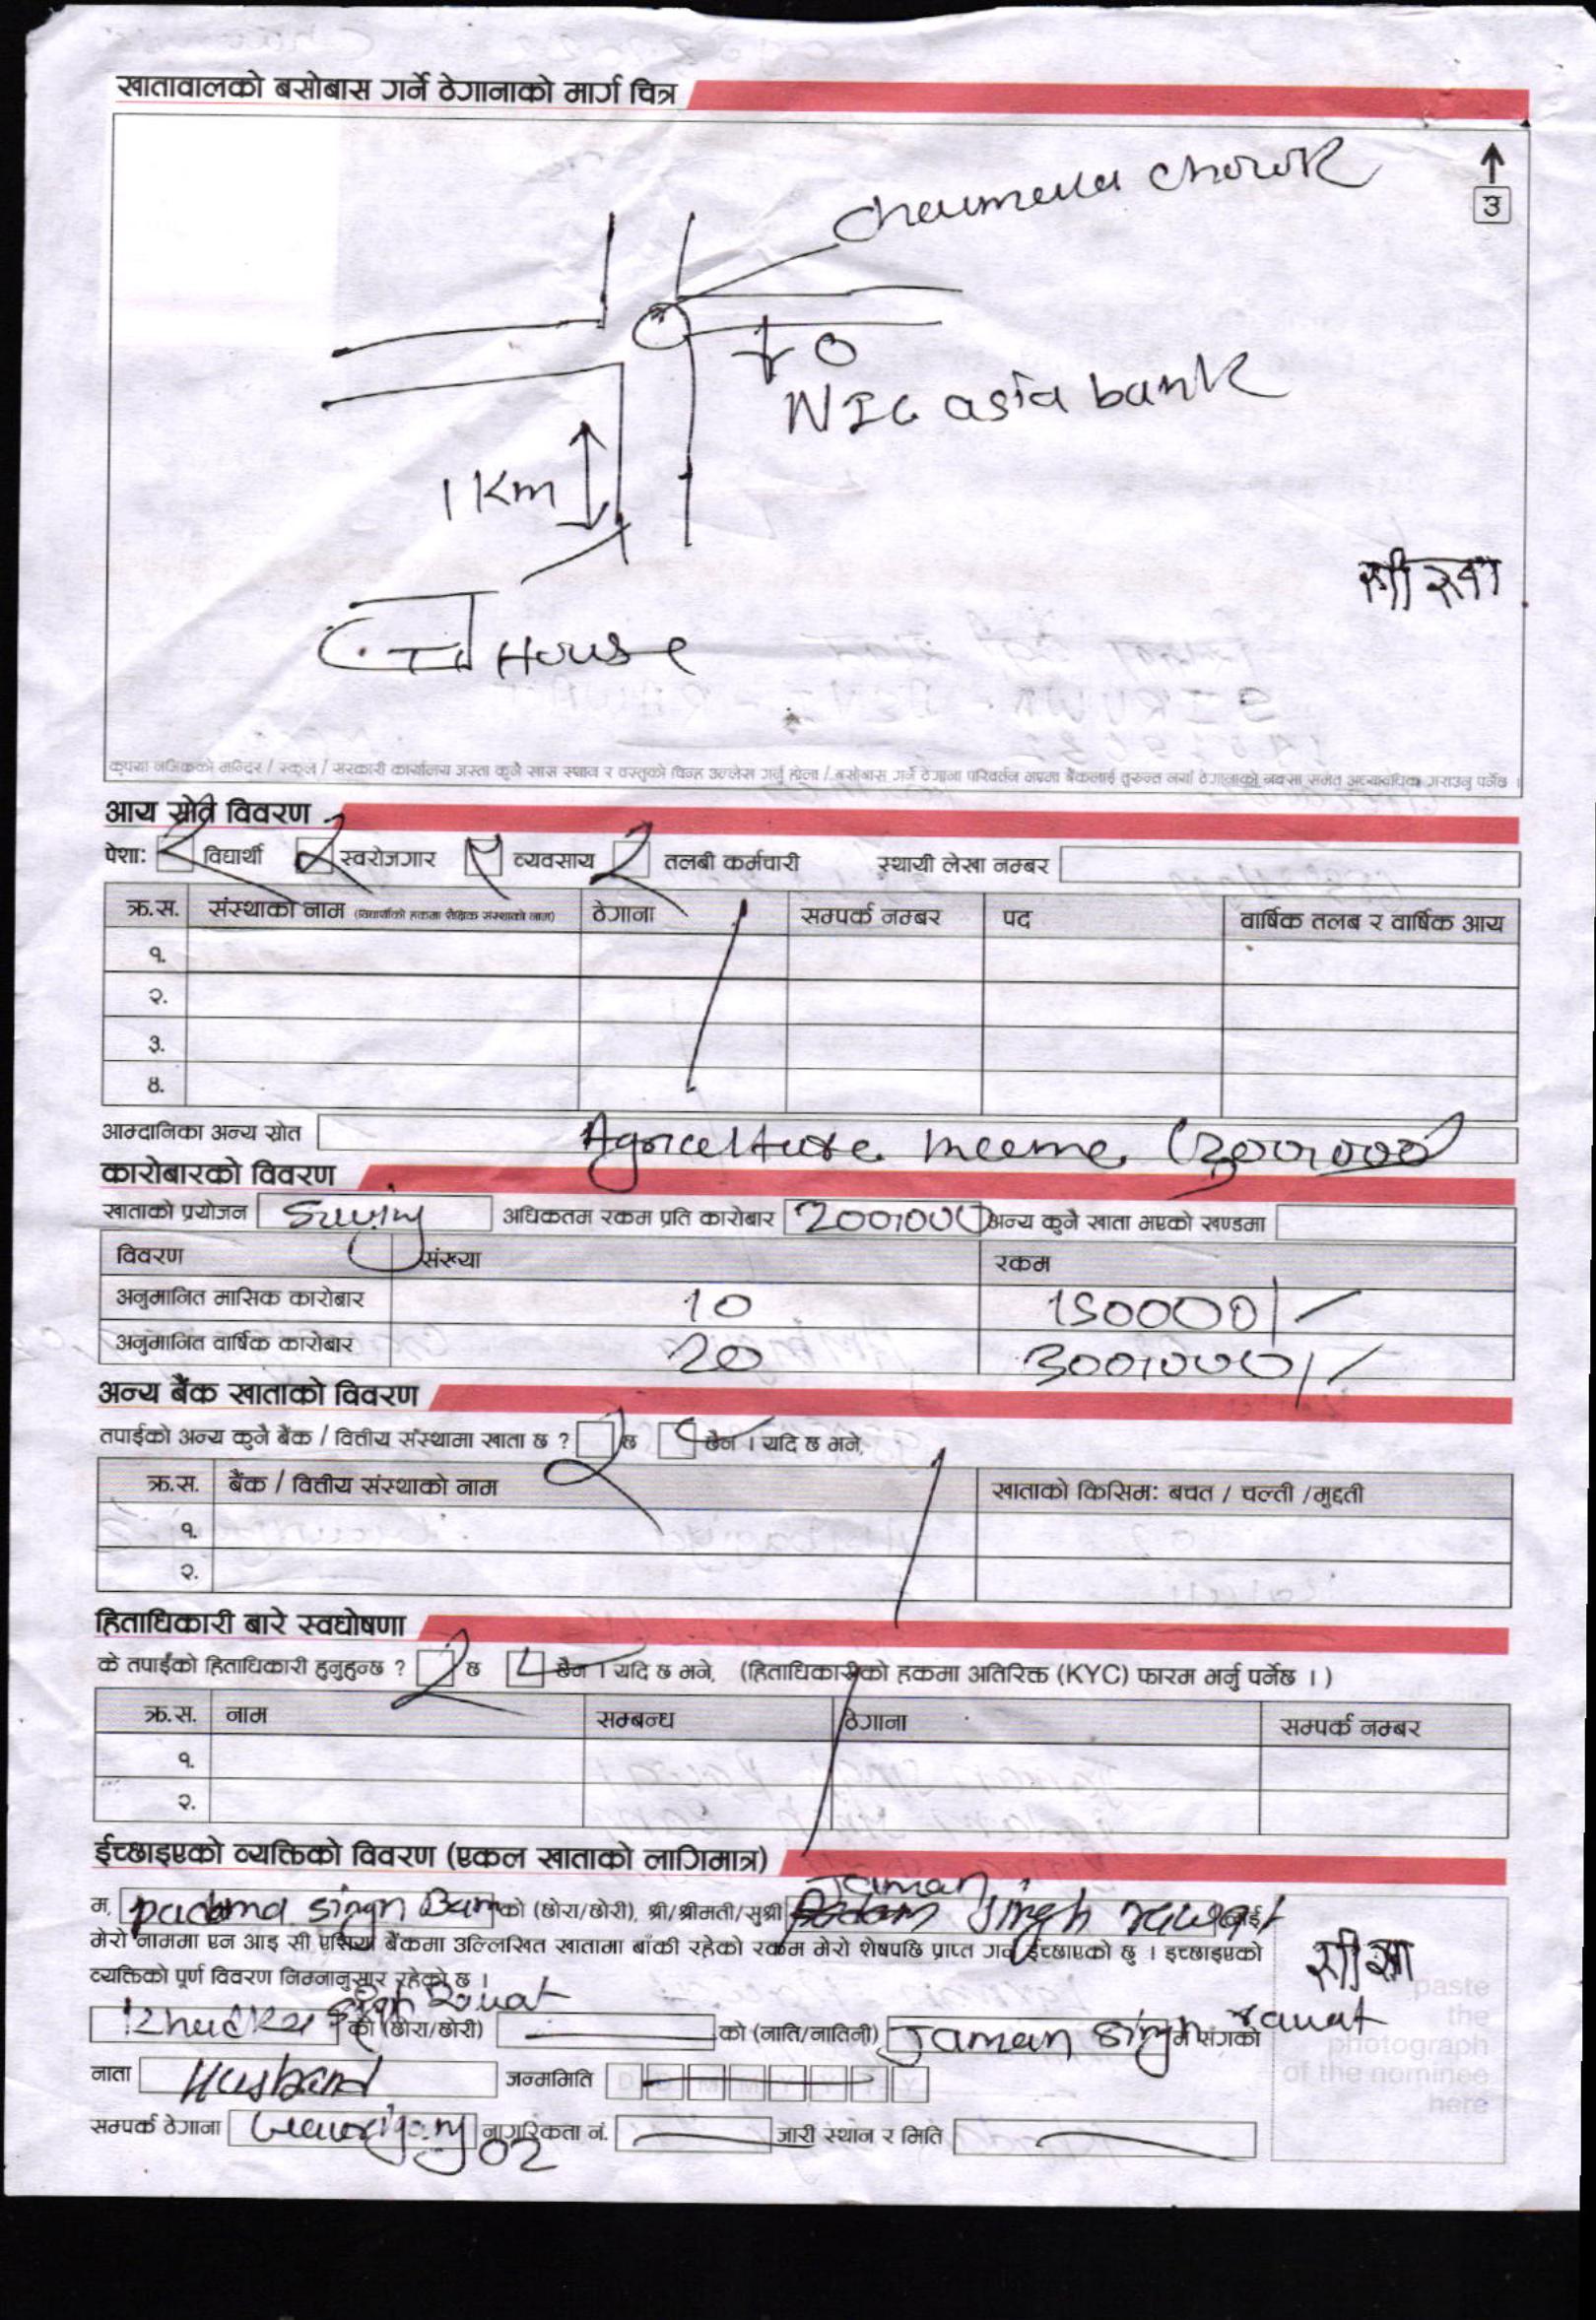 खातावालको बसोबास गर्ने ठेगानाको मार्ग चित्र
chowk
उ
NIC asia bank
1 Km
House
कृपया नजिकको मन्दिर / स्कूल / सरकारी कार्यालय जस्ता कुनै खास स्थान र वस्तुको चिन्ह उल्लेख गर्नु होला / बसोबास गर्ने ठेगाना परिवर्तन भएमा बैंकलाई तुरुन्त नयाँ ठेगानाको नक्सा समेत अध्यावधिक गराउनु पर्नेछ ।
आय स्रोत विवरण
पेशा: विद्यार्थी स्वरोजगार व्यवसाय तलबी कर्मचारी स्थायी लेखा नम्बर
क्र.स. संस्थाको नाम (विद्यार्थीको हकमा शैक्षिक संस्थाको नाम) ठेगाना सम्पर्क नम्बर पद वार्षिक तलब र वार्षिक आय
१.
२.
३.
४.
आम्दानिका अन्य स्रोत
कारोबारको विवरण
खाताको प्रयोजन अधिकतम रकम प्रति कारोबार अन्य कुनै खाता भएको खण्डमा
विवरण संख्या रकम
अनुमानित मासिक कारोबार 10 150000/-
अनुमानित वार्षिक कारोबार 20 300,000/-
अन्य बैंक खाताको विवरण
तपाईको अन्य कुनै बैंक / वित्तीय संस्थामा खाता छ ? छ छैन । यदि छ भने,
क्र.स. बैंक / वित्तीय संस्थाको नाम खाताको किसिम: बचत / चल्ती /मुद्दती
१.
२.
हिताधिकारी बारे स्वघोषणा
के तपाईको हिताधिकारी हुनुहुन्छ ? छ छैन । यदि छ भने, (हिताधिकारीको हकमा अतिरिक्त (KYC) फारम भर्नु पर्नेछ । )
क्र.स. नाम सम्बन्ध ठेगाना सम्पर्क नम्बर
१.
२.
ईच्छाइएको व्यक्तिको विवरण (एकल खाताको लागिमात्र)
Jaman
म, padma singh Bam को (छोरा/छोरी), श्री/श्रीमती/सुश्री Singh rawat लाई
मेरो नाममा एन आइ सी एसिया बैंकमा उल्लिखित खातामा बाँकी रहेको रकम मेरो शेषपछि प्राप्त गर्न ईच्छाएको छु । इच्छाइएको
व्यक्तिको पूर्ण विवरण निम्नानुसार रहेको छ ।
Rawat
को (छोरा/छोरी) को (नाति/नातिनी) Jaman singh rawat म संगको
नाता Husband जन्ममिति
सम्पर्क ठेगाना 02 नागरिकता नं. जारी स्थान र मिति
paste
the
photograph
of the nominee
here